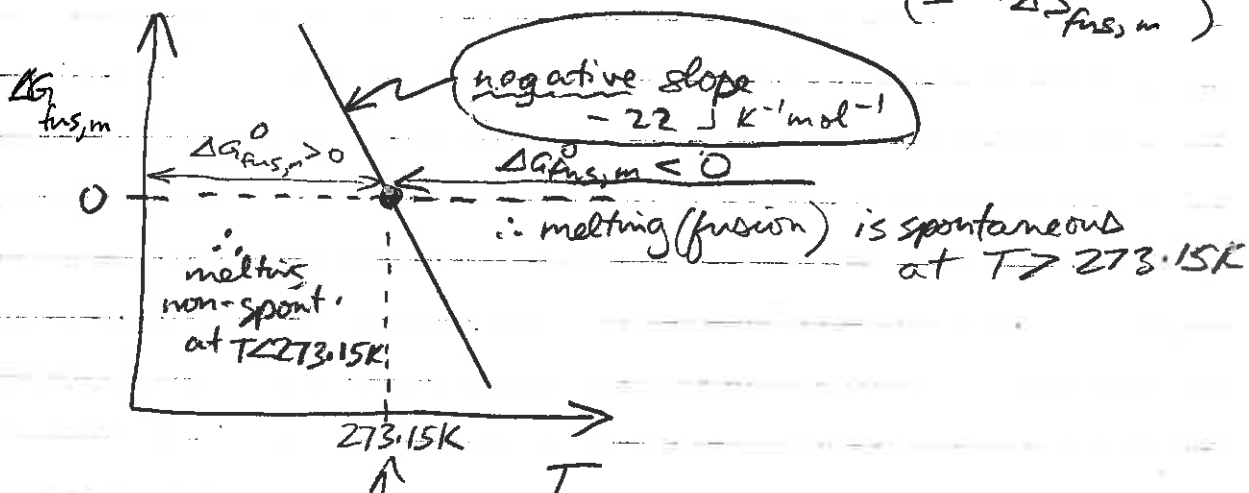 (= -ΔS fus, m)
negative slope
- 22 J K⁻¹ mol⁻¹
ΔG fus,m
ΔG⁰fus,m > 0
ΔG⁰fus,m < 0
0
∴ melting (fusion) is spontaneous
at T > 273.15K
∴
melting
non-spont.
at T<273.15K
273.15K
T